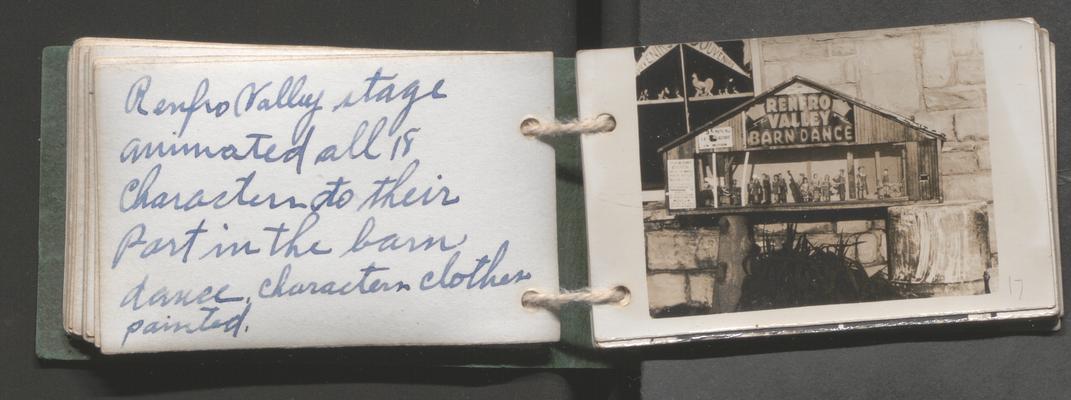 Renfro Valley stage
animated all 18
Characters to their
Part in the barn
dance, characters clothes
painted.
RENFRO
VALLEY
BARN DANCE
17